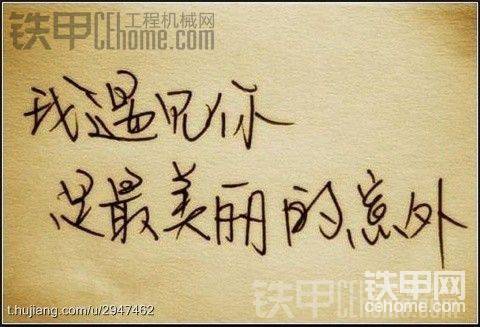 铁甲 工程机械网
CEhome.com
我遇见你
是最美丽的意外
铁甲网
CEhome.com
t.hujiang.com/u/2947462